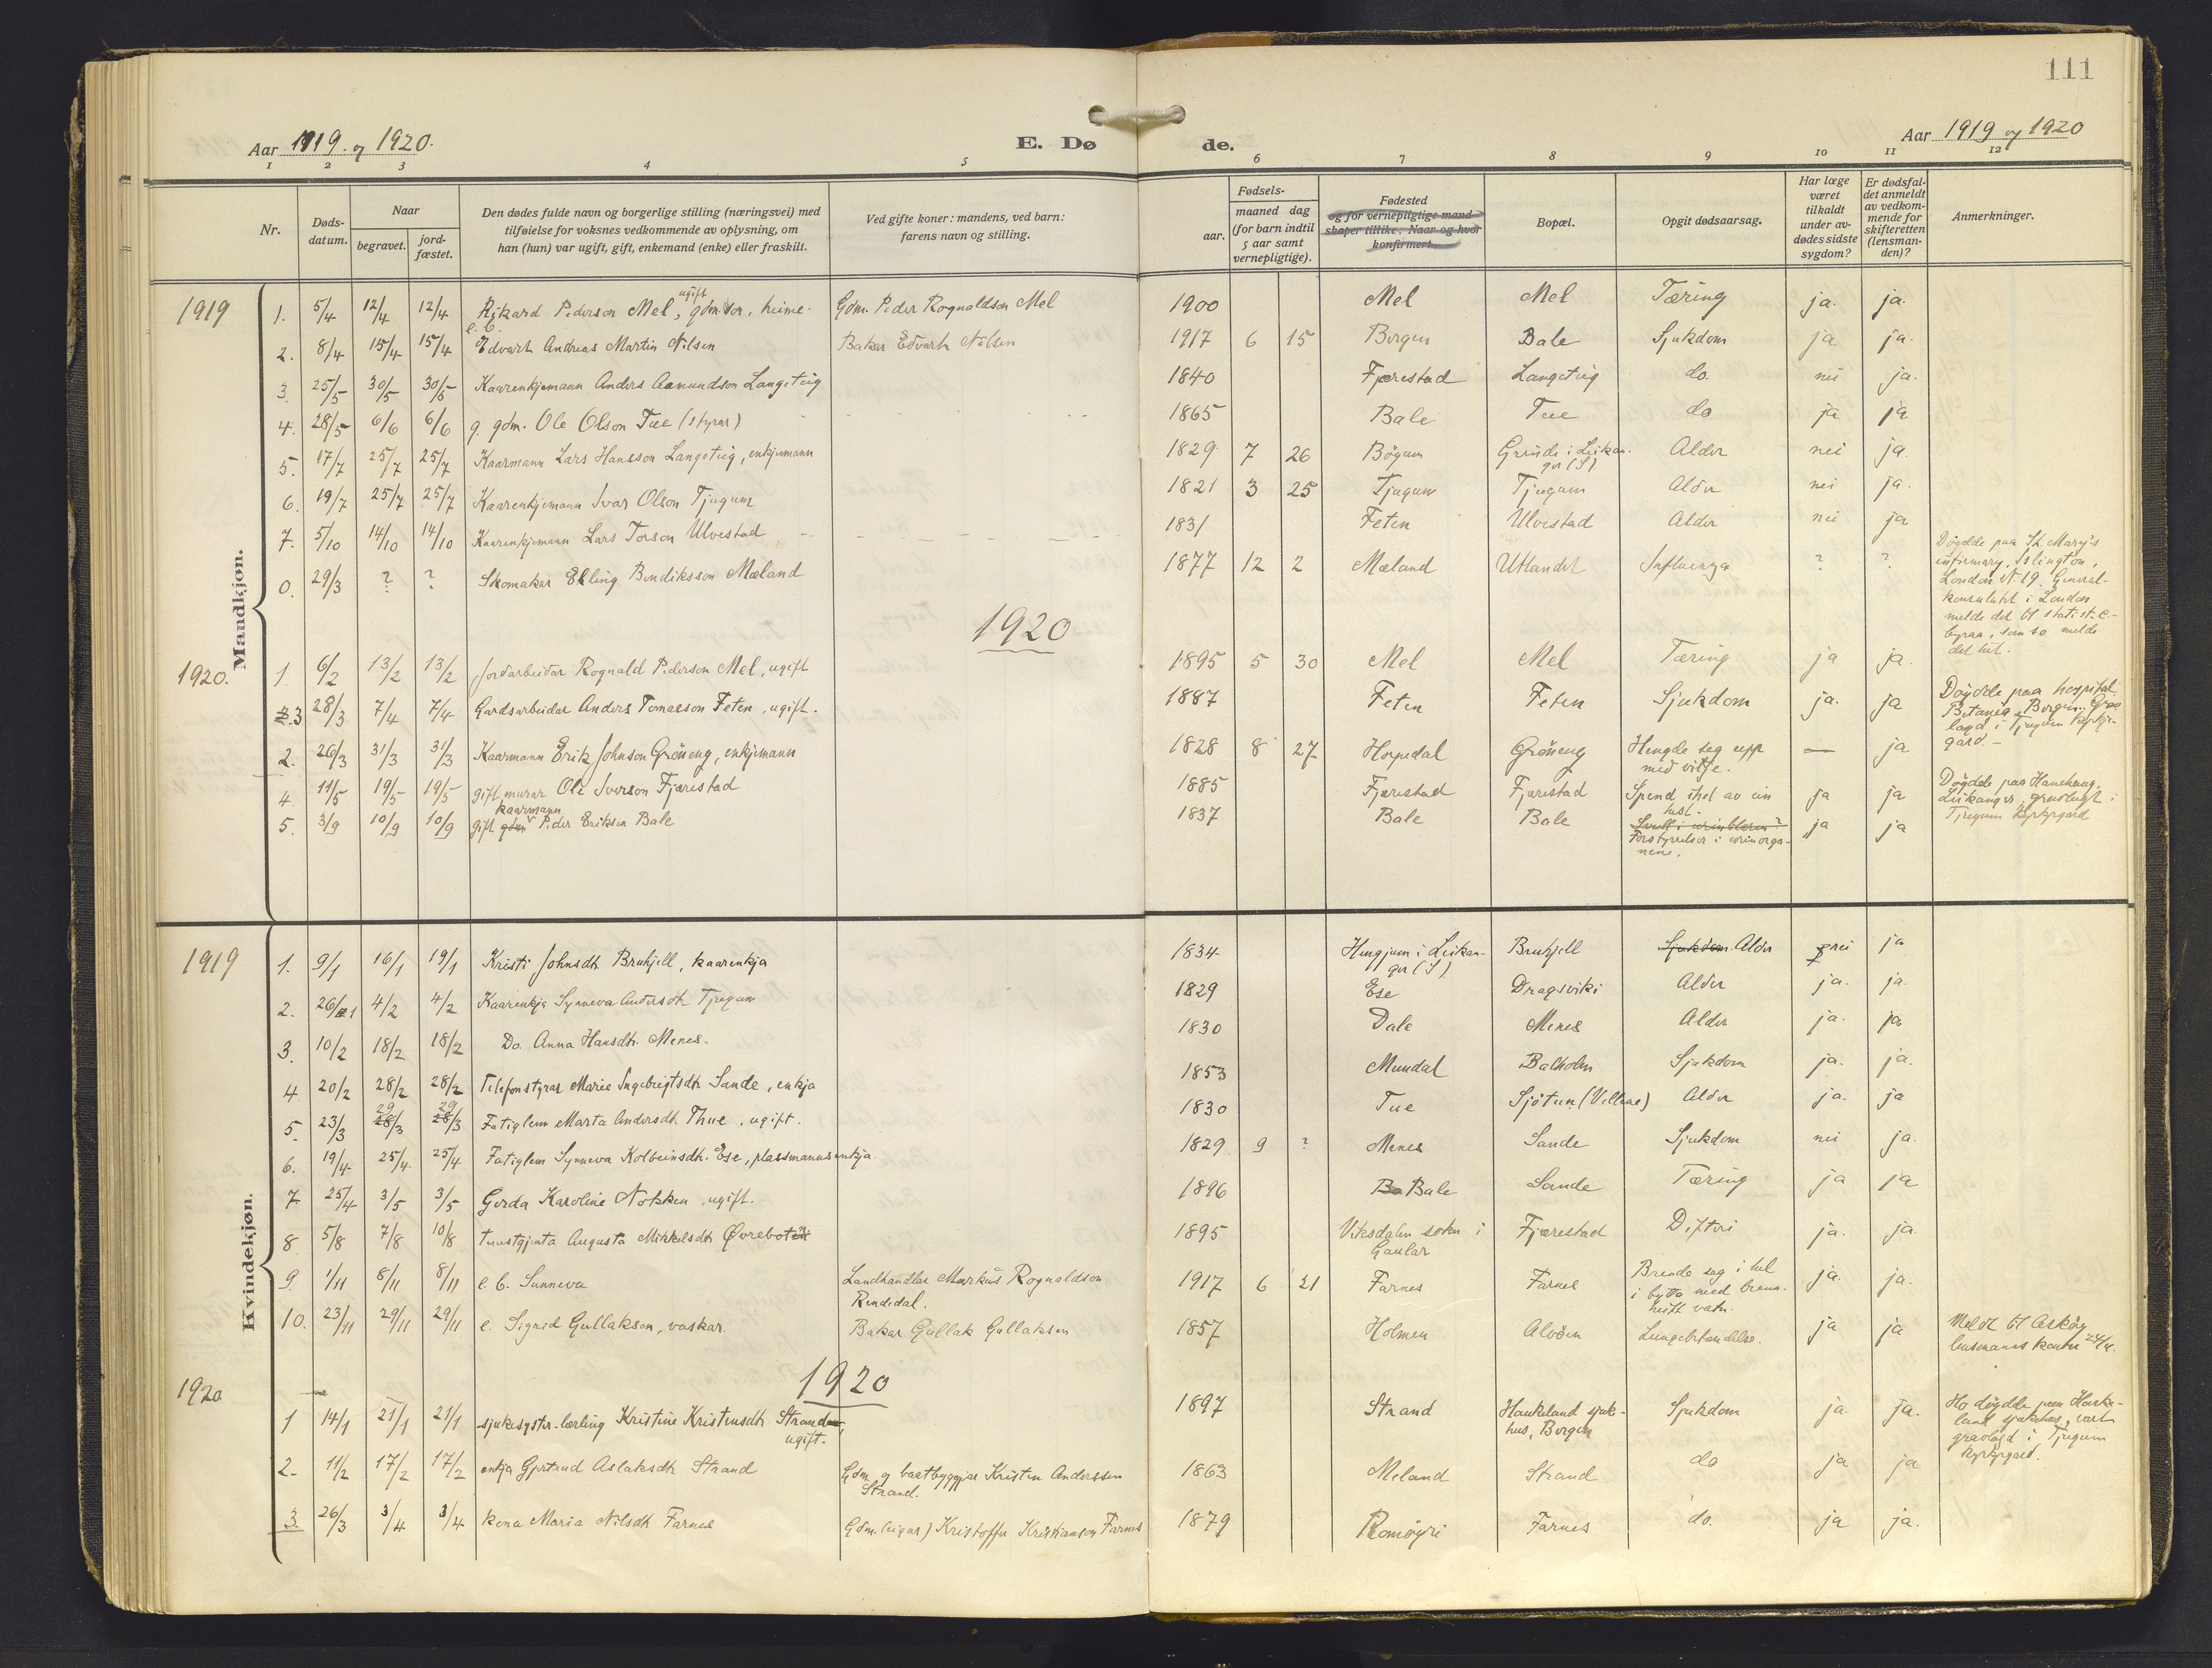 111
Aar 1919 og 1920.
E. Dø
de.
Aar 1919 og 1920
1 2 3 4 5 6 7 8 9 10 11 12
Nr.
Døds-
datum.
Naar
begravet.
jord-
fæstet.
Den dødes fulde navn og borgerlige stilling (næringsvei) med
tilføielse for voksnes vedkommende av oplysning, om
han (hun) var ugift, gift, enkemand (enke) eller fraskilt.
Ved gifte koner: mandens, ved barn:
farens navn og stilling.
Fødsels-
aar.
maaned dag
(for barn indtil
5 aar samt
vernepligtige).
Fødested
og for vernepligtige mand-
skaper tillike: Naar og hvor
konfirmert.
Bopæl.
Opgit dødsaarsag.
Har læge
været
tilkaldt
under av-
dødes sidste
sygdom?
Er dødsfal-
det anmeldt
av vedkom-
mende for
skifteretten
(lensman-
den)?
Anmerkninger.
Mandkjøn.
1919 1. 5/4 12/4 12/4 Rikard Pederson Mel, ugift gdm. son, heime. Gdm. Peder Rognaldson Mel 1900 Mel Mel Tæring ja. ja.
2. 8/4 15/4 15/4 e. b. Edvart Andreas Martin Nilsen Bakar Edvart Nilsen 1917 6 15 Bergen Bale Sjukdom ja ja.
3. 25/5 30/5 30/5 Kaarenkjemann Anders Aamundson Langeteig 1840 Fjærestad Langeteig do. nei ja.
4. 28/5 6/6 6/6 g. gdm. Ole Olson Tue (styrar) 1865 Bale Tue do ja ja
5. 17/7 25/7 25/7 Kaarmann Lars Hansson Langeteig, enkjemann 1829 7 26 Bøyum Grinde i Leikan-
ger (S) Alder nei ja.
6. 19/7 25/7 25/7 Kaarenkjemann Ivar Olson Tjugum 1821 3 25 Tjugum Tjugum Alder nei ja.
7. 5/10 14/10 14/10 Kaarenkjemann Lars Torson Ulvestad 1831 Feten Ulvestad Alder nei ja
0. 29/3 ? ? Skomakar Elling Bendiksson Mæland 1877 12 2 Mæland Utlandet Influenza ? ? Døydde paa St. Mary's
infirmary, Islington,
London N 19. General-
konsulatet i London
melde det til statist. c-
byraa, som so melde
det hit.
1920
1920. 1. 6/2 13/2 13/2 Jordarbeidar Rognald Pederson Mel, ugift 1895 5 30 Mel Mel Tæring ja ja.
3 28/3 7/4 7/4 Gardsarbeidar Anders Tomasson Feten, ugift. 1887 Feten Feten Sjukdom ja. ja Døydde paa hospital
Betania, Bergen. Grav-
lagd i Tjugum kyrkje-
gard.
2. 26/3 31/3 31/3 Kaarmann Erik Johnson Grøneng, enkjemann 1828 8 27 Hopedal Grøneng Hengde seg upp
med vilje. — ja
4 11/5 19/5 19/5 gift murar Ole Iverson Fjærestad 1885 Fjærestad Fjærestad Spend ihel av ein
hest. ja ja Døydde paa Hanehaug,
Leikanger, gravlagt i
Tjugum kyrkjegard
5. 3/9 10/9 10/9 gift gdm kaarmann Peder Eriksen Bale 1837 Bale Bale Svull i urinblæra?
Forstyrrelser i urinorga-
nene. ja ja
Kvindekjøn.
1919 1. 9/1 16/1 19/1 Kristi Johnsdtr Brekjell, kaarenkja 1834 Hengjum i Leikan-
ger (S) Brekjell Sjukdom. Alder nei ja
2. 26/1 4/2 4/2 Kaarenkja Synneva Andersdtr Tjugum 1829 Ese Dragsviki Alder ja. ja.
3. 10/2 18/2 18/2 Do. Anna Hansdtr. Menes. 1830 Dale Menes Alder ja. ja
4 20/2 28/2 28/2 Telefonstyrar Marie Ingebrigtsdtr Sande, enkja 1853 Mundal Balholm Sjukdom ja. ja.
5. 23/3 29 28/3 29 28/3 Fatiglem Marta Andersdtr. Thue, ugift. 1830 Tue Sjøtun (Veltene) Alder ja. ja
6. 19/4 25/4 25/4 Fatiglem Synneva Kolbeinsdtr. Ese, plassmannsenkja. 1829 9 ? Menes Sande Sjukdom nei ja.
7 25/4 3/5 3/5 Gerda Karoline Nøkken, ugift. 1896 Ba Bale Sande Tæring ja ja
8 5/8 7/8 10/8 tenestgjenta Augusta Mikkelsdtr Øvrebotn 1895 Viksdalen sokn i
Gaular Fjærestad Difteri ja. ja
9. 1/11 8/11 8/11 e. b. Sunneva Landhandlar Markus Rognaldson
Rendedal. 1917 6 21 Farnes Farnes Brende seg i hel
i bytta med brenn-
heitt vatn. ja. ja.
10. 23/11 29/11 29/11 e. Sigrid Gullaksen, vaskar. Bakar Gullak Gullaksen 1857 Holmen Alvøen Lungebetendelse. ja ja Meldt til Askøy
lensmanns kontor 24/11.
1920
1920 1 14/1 21/1 21/1 sjukesyster-lærling Kristine Kristensdtr Strand,
ugift. 1897 Strand Haukeland sjuk-
hus, Bergen Sjukdom ja. ja. Ho døydde paa Hauke-
land sjukehus, vart
gravlagd i Tjugum
kyrkjegard.
2. 11/2 17/2 17/2 enkja Gjertrud Aslaksdtr Strand Gdm. og baatbyggjar Kristen Anderssen
Strand. 1863 Meland Strand do ja ja
3. 26/3 3/4 3/4 kona Maria Nilsdtr Farnes Gdm. (eigar) Kristoffer Kristianson Farnes 1879 Romøyri Farnes do. ja ja.